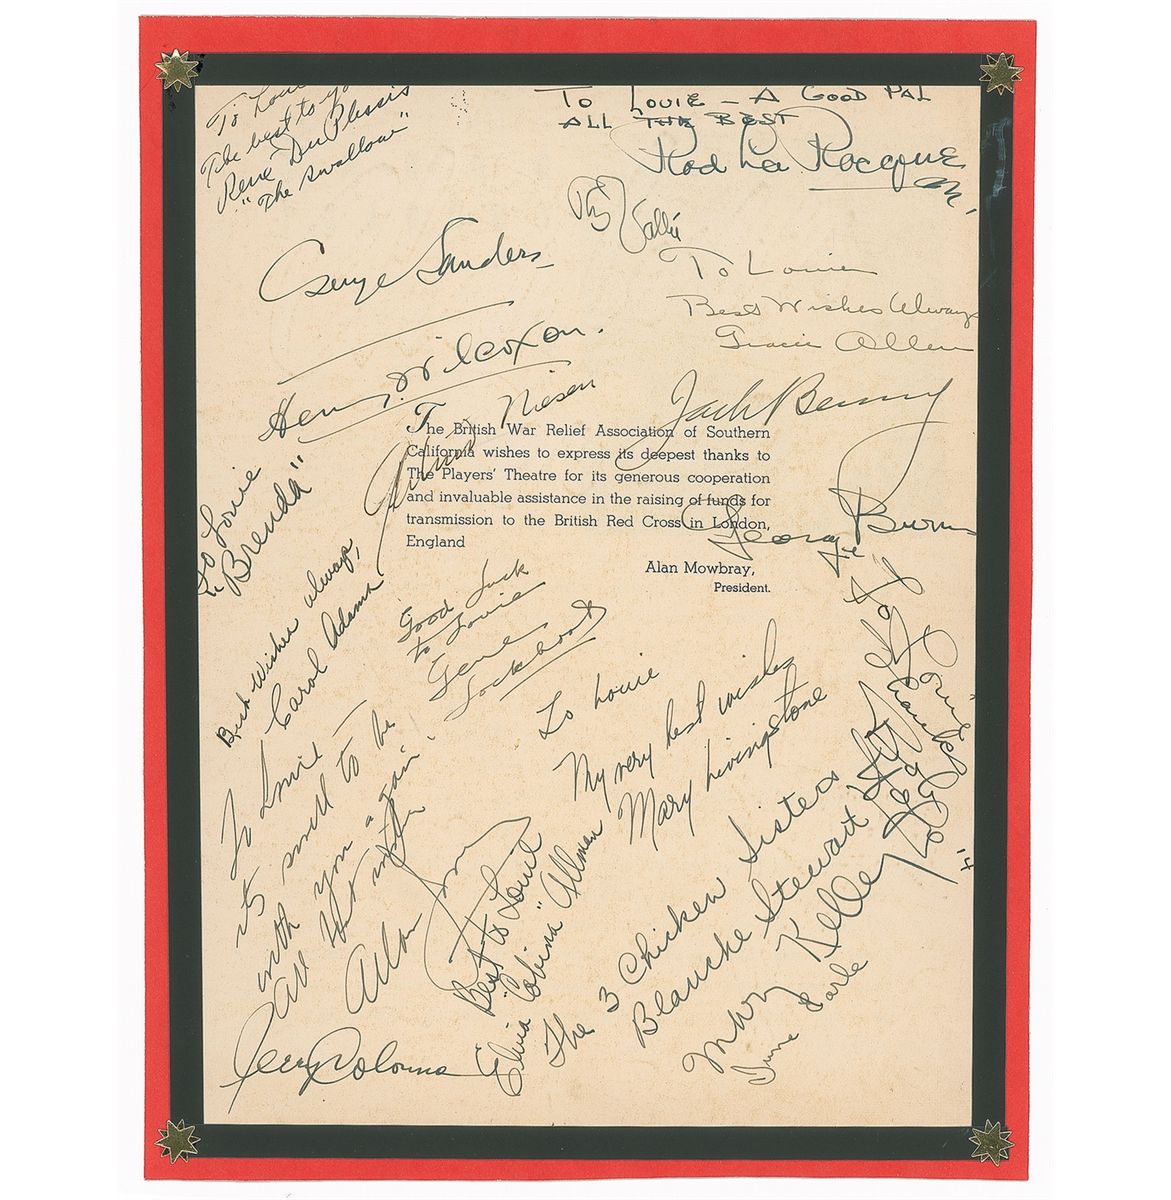 To Louie
The best to you
René Du Plessis
"The Swallow"
To Louie – A Good Pal
All The Best
Rod La Rocque
Rudy Vallée
George Sanders
To Louie
Best Wishes Always
Gracie Allen
Henry Wilcoxon.
Niesen
Jack Benny
The British War Relief Association of Southern
California wishes to express its deepest thanks to
The Players' Theatre for its generous cooperation
and invaluable assistance in the raising of funds for
transmission to the British Red Cross in London,
England
Alan Mowbray,
President.
George Burns
To Louie
"Brenda"
Best Wishes always,
Carol Adams
Good Luck
to Louie
Gene
Lockhart
To Louie
My very best wishes
Mary Livingstone
To Louie –
it's swell to be
with you again.
All
Alan
Best to Louie
Elvia "Cobina" Allman
The 3 Chicken Sisters
Blanche Stewart
Mary Kelley
June Earle
Jerry Colonna